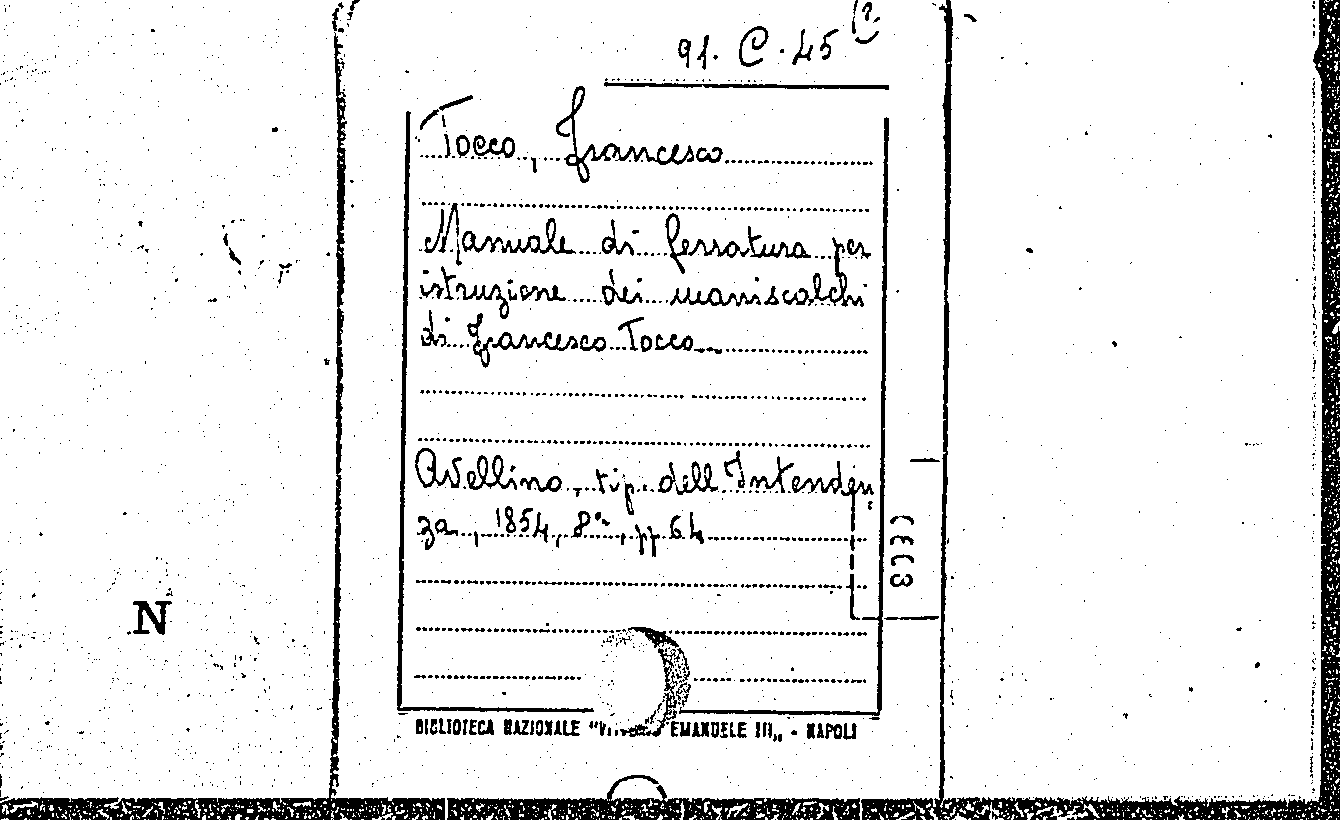 91. C. 45 (2
Tocco, Francesco
Manuale di ferratura per
istruzione dei maniscalchi
di Francesco Tocco
Avellino, tip. dell'Intenden
za, 1854, 8°, pp 64
N
BIBLIOTECA NAZIONALE "VITTORIO EMANUELE III„ - NAPOLI